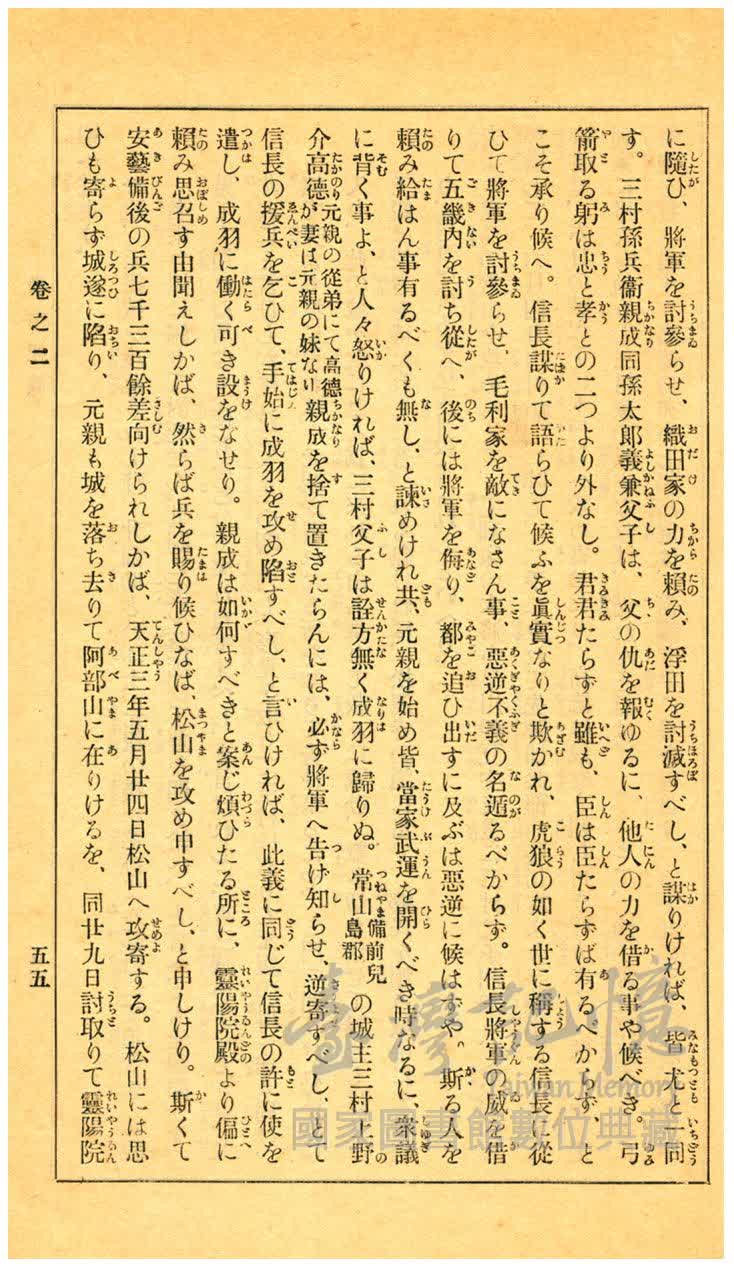 に隨ひ、將軍を討參らせ、織田家の力を頼み、浮田を討滅すべし、と謀りければ、皆尤と一同
す。三村孫兵衞親成同孫太郎義兼父子は、父の仇を報ゆるに、他人の力を借る事や候べき。弓
箭取る躬は忠と孝との二つより外なし。君君たらずと雖も、臣は臣たらずば有るべからず、と
こそ承り候へ。信長謀りて語らひて候ふを眞實なりと欺かれ、虎狼の如く世に稱する信長に從
ひて將軍を討參らせ、毛利家を敵になさん事、惡逆不義の名遁るべからず。信長將軍の威を借
りて五畿内を討ち從へ、後には將軍を侮り、都を追ひ出すに及ぶは惡逆に候はずや。斯る人を
頼み給はん事有るべくも無し、と諫めけれ共、元親を始め皆、當家武運を開くべき時なるに、衆議
に背く事よ、と人々怒りければ、三村父子は詮方無く成羽に歸りぬ。常山備前兒島郡の城主三村上野
介高德元親の從弟にて高德が妻は元親の妹なり親成を捨て置きたらんには、必ず將軍へ告げ知らせ、逆寄すべし、とて
信長の援兵を乞ひて、手始に成羽を攻め陷すべし、と言ひければ、此義に同じて信長の許に使を
遣し、成羽に働く可き設をなせり。親成は如何すべきと案じ煩ひたる所に、靈陽院殿より偏に
頼み思召す由聞えしかば、然らば兵を賜り候ひなば、松山を攻め申すべし、と申しけり。斯くて
安藝備後の兵七千三百餘差向けられしかば、天正三年五月廿四日松山へ攻寄する。松山には思
ひも寄らず城遂に陷り、元親も城を落ち去りて阿部山に在りけるを、同廿九日討取りて靈陽院
卷之二
五五
臺灣記憶
Taiwan Memory
國家圖書館數位典藏